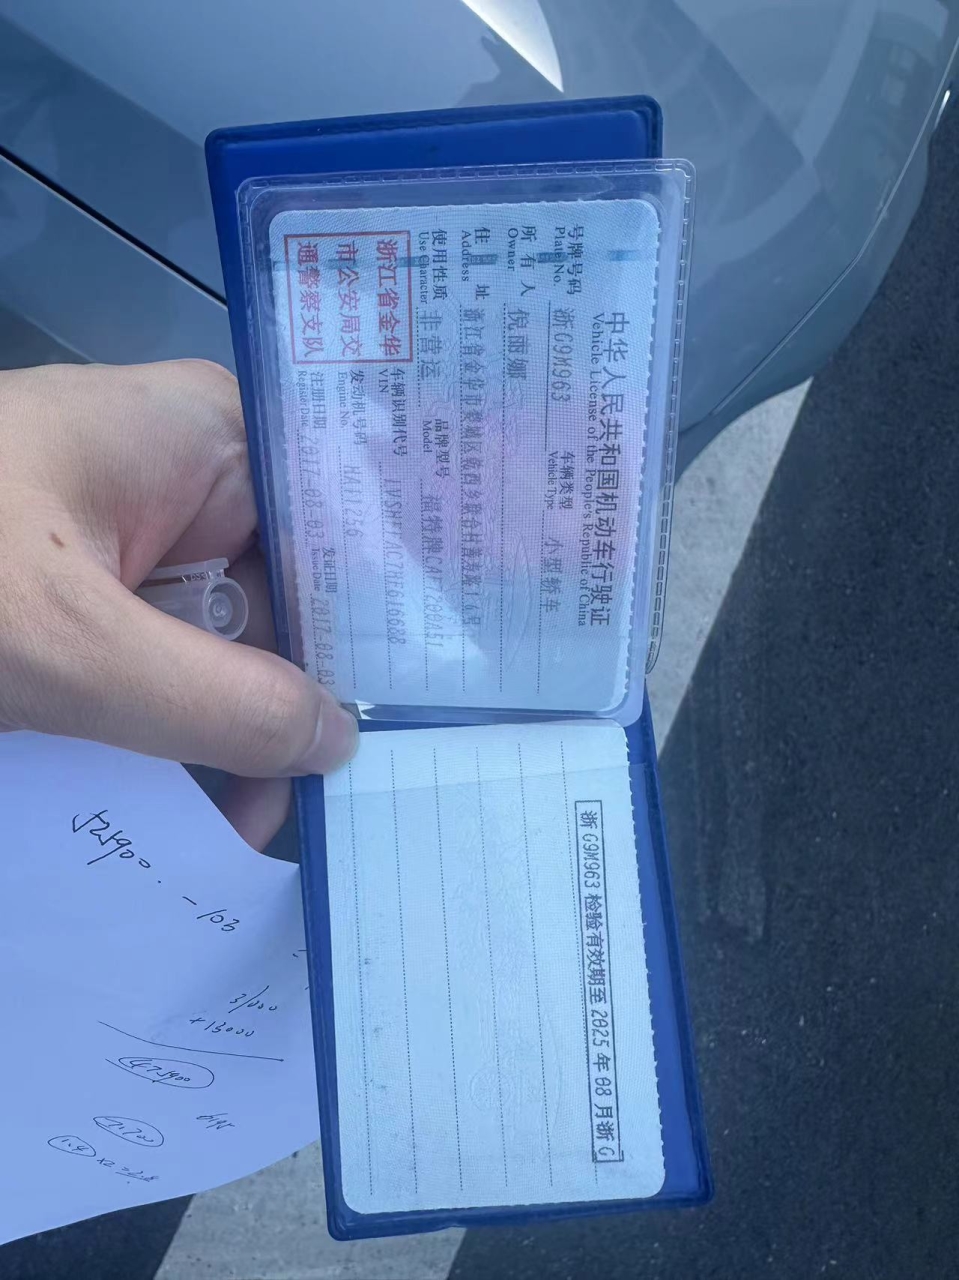 中华人民共和国机动车行驶证
Vehicle License of the People's Republic of China
号牌号码 浙G9M963 车辆类型 小型轿车
Plate No. Vehicle Type
所有人 倪丽娜
Owner
住址 浙江省金华市婺城区乾西乡
Address
使用性质 非营运 品牌型号 福特牌CAF7200A51
Use Character Model
浙江省金华
市公安局交
通警察支队
车辆识别代号 LVSHFFAC7HE616688
VIN
发动机号码 HA11256
Engine No.
注册日期 2017-08-03 发证日期 2017-08-03
Register Date Issue Date
浙G9M963 检验有效期至 2025年08月浙G
-103
31000
+13000